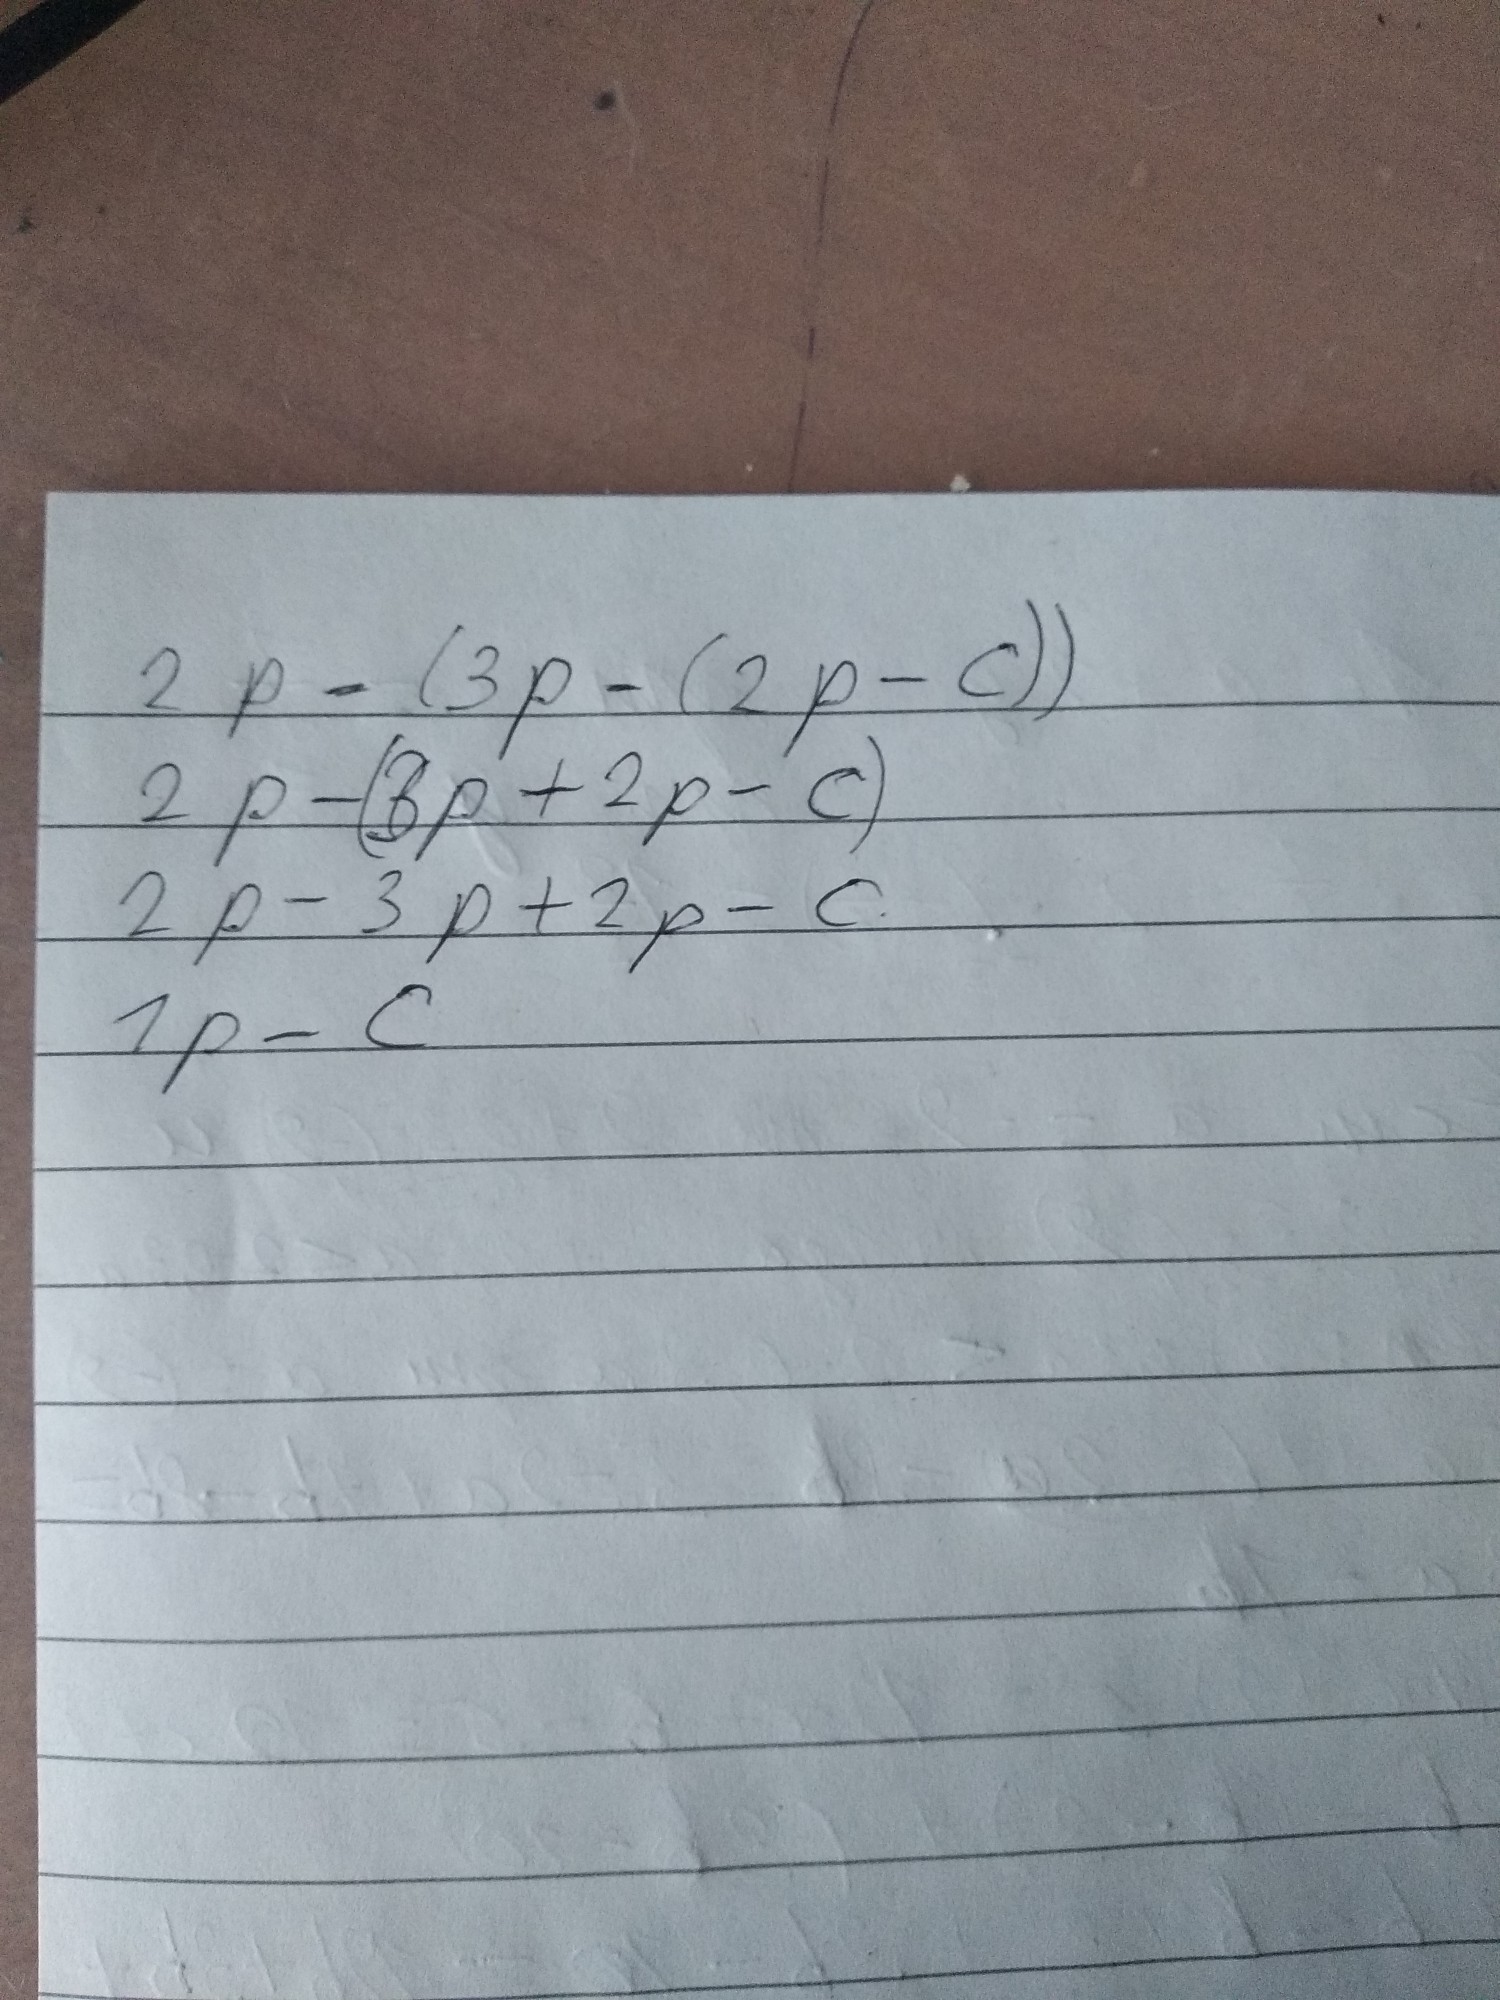 2p - (3p - (2p - c))
2p - (3p + 2p - c)
2p - 3p + 2p - c
1p - c